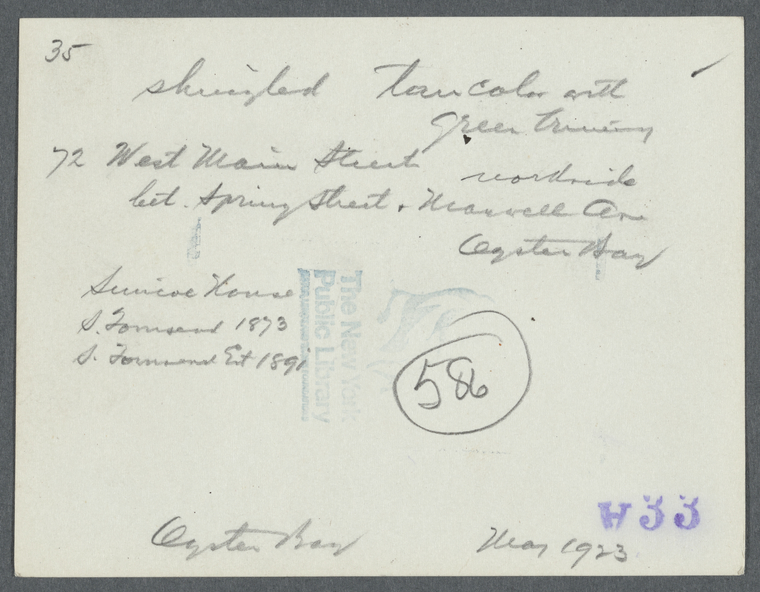 35
shingled tan color with
green triming
72 West Main Street northside
bet. Spring Street & Maxwell Ave
Oyster Bay
Simcoe House
S. Townsend 1873
S. Townsend Est 1891
The New York
Public Library
586
H33
Oyster Bay May 1923